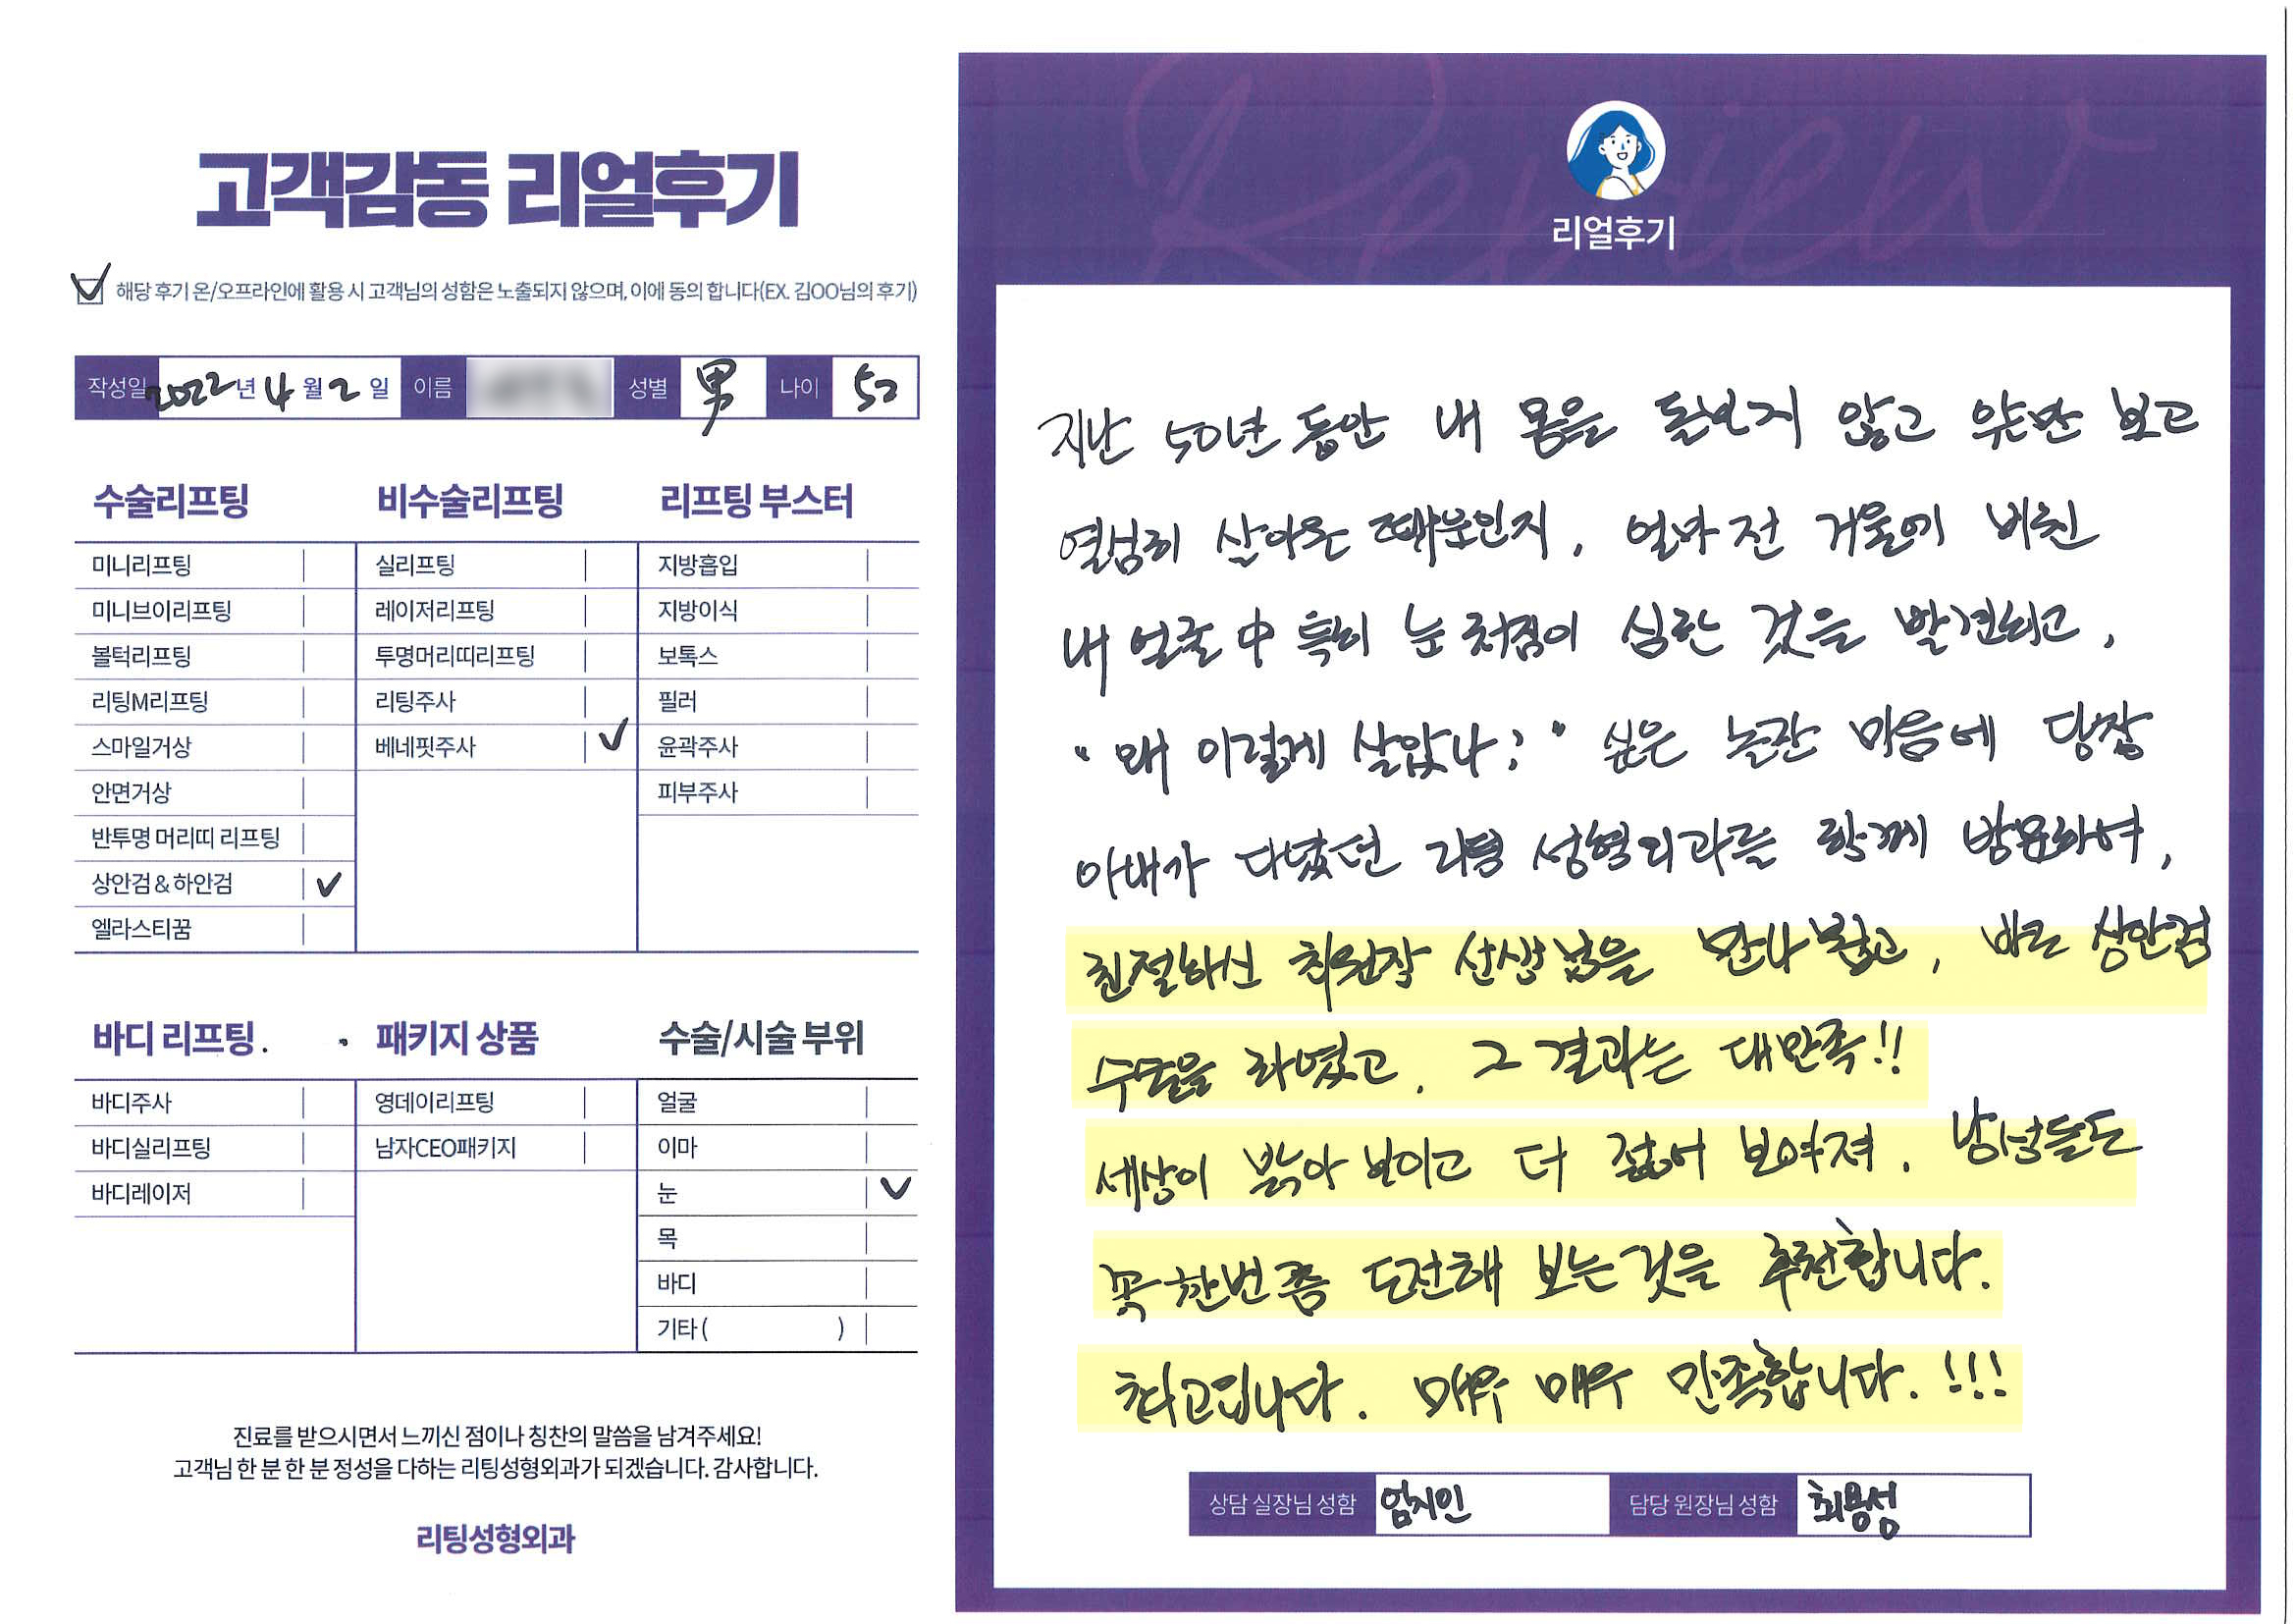 고객감동 리얼후기
해당 후기 온/오프라인에 활용 시 고객님의 성함은 노출되지 않으며, 이에 동의 합니다(EX. 김OO님의 후기)
작성일 2022년 4월 2일 이름 성별 男 나이 52
수술리프팅
미니리프팅
미니브이리프팅
볼턱리프팅
리팅M리프팅
스마일거상
안면거상
반투명 머리띠 리프팅
상안검 & 하안검 ✓
엘라스티꿈
비수술리프팅
실리프팅
레이저리프팅
투명머리띠리프팅
리팅주사
베네핏주사 ✓
리프팅 부스터
지방흡입
지방이식
보톡스
필러
윤곽주사
피부주사
바디 리프팅
바디주사
바디실리프팅
바디레이저
패키지 상품
영데이리프팅
남자CEO패키지
수술/시술 부위
얼굴
이마
눈 ✓
목
바디
기타 ( )
진료를 받으시면서 느끼신 점이나 칭찬의 말씀을 남겨주세요!
고객님 한 분 한 분 정성을 다하는 리팅성형외과가 되겠습니다. 감사합니다.
리팅성형외과
Review
리얼후기
지난 50년 동안 내 몸을 돌보지 않고 보고
열심히 살아온 때문인지, 얼마 전 거울에 비친
내 얼굴 中 특히 눈 처짐이 심한 것을 발견하고,
"왜 이렇게 살았나?" 싶은 놀란 마음에 당장
아내가 다녔던 리팅 성형외과를 함께 방문하여,
친절하신 최원장 선생님을 만나 뵙고, 바로 상안검
수술을 하였고, 그 결과는 대만족!!
세상이 밝아 보이고 더 젊어 보여져, 남성들도
꼭 한번쯤 도전해 보는것을 추천합니다.
최고입니다. 매우 매우 만족합니다.!!!
상담 실장님 성함 엄지인 담당 원장님 성함 최용성